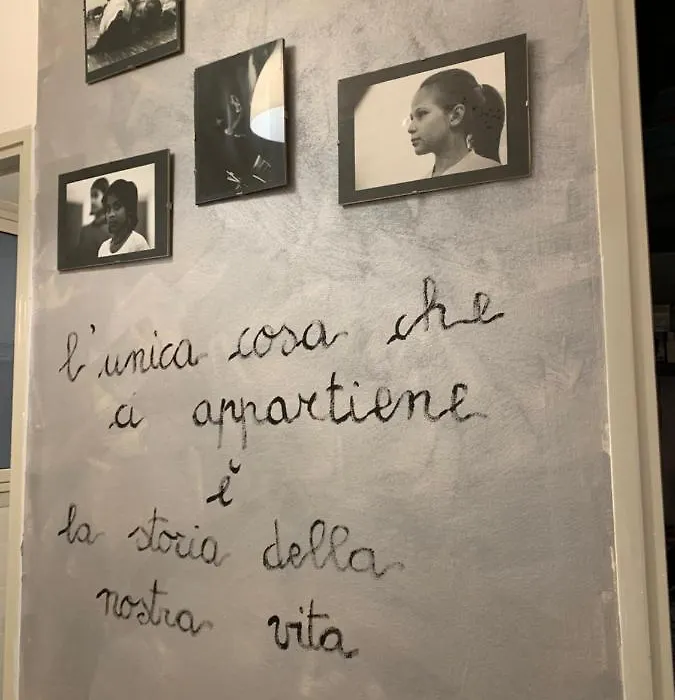 l'unica cosa che
ci appartiene
è
la storia della
nostra vita